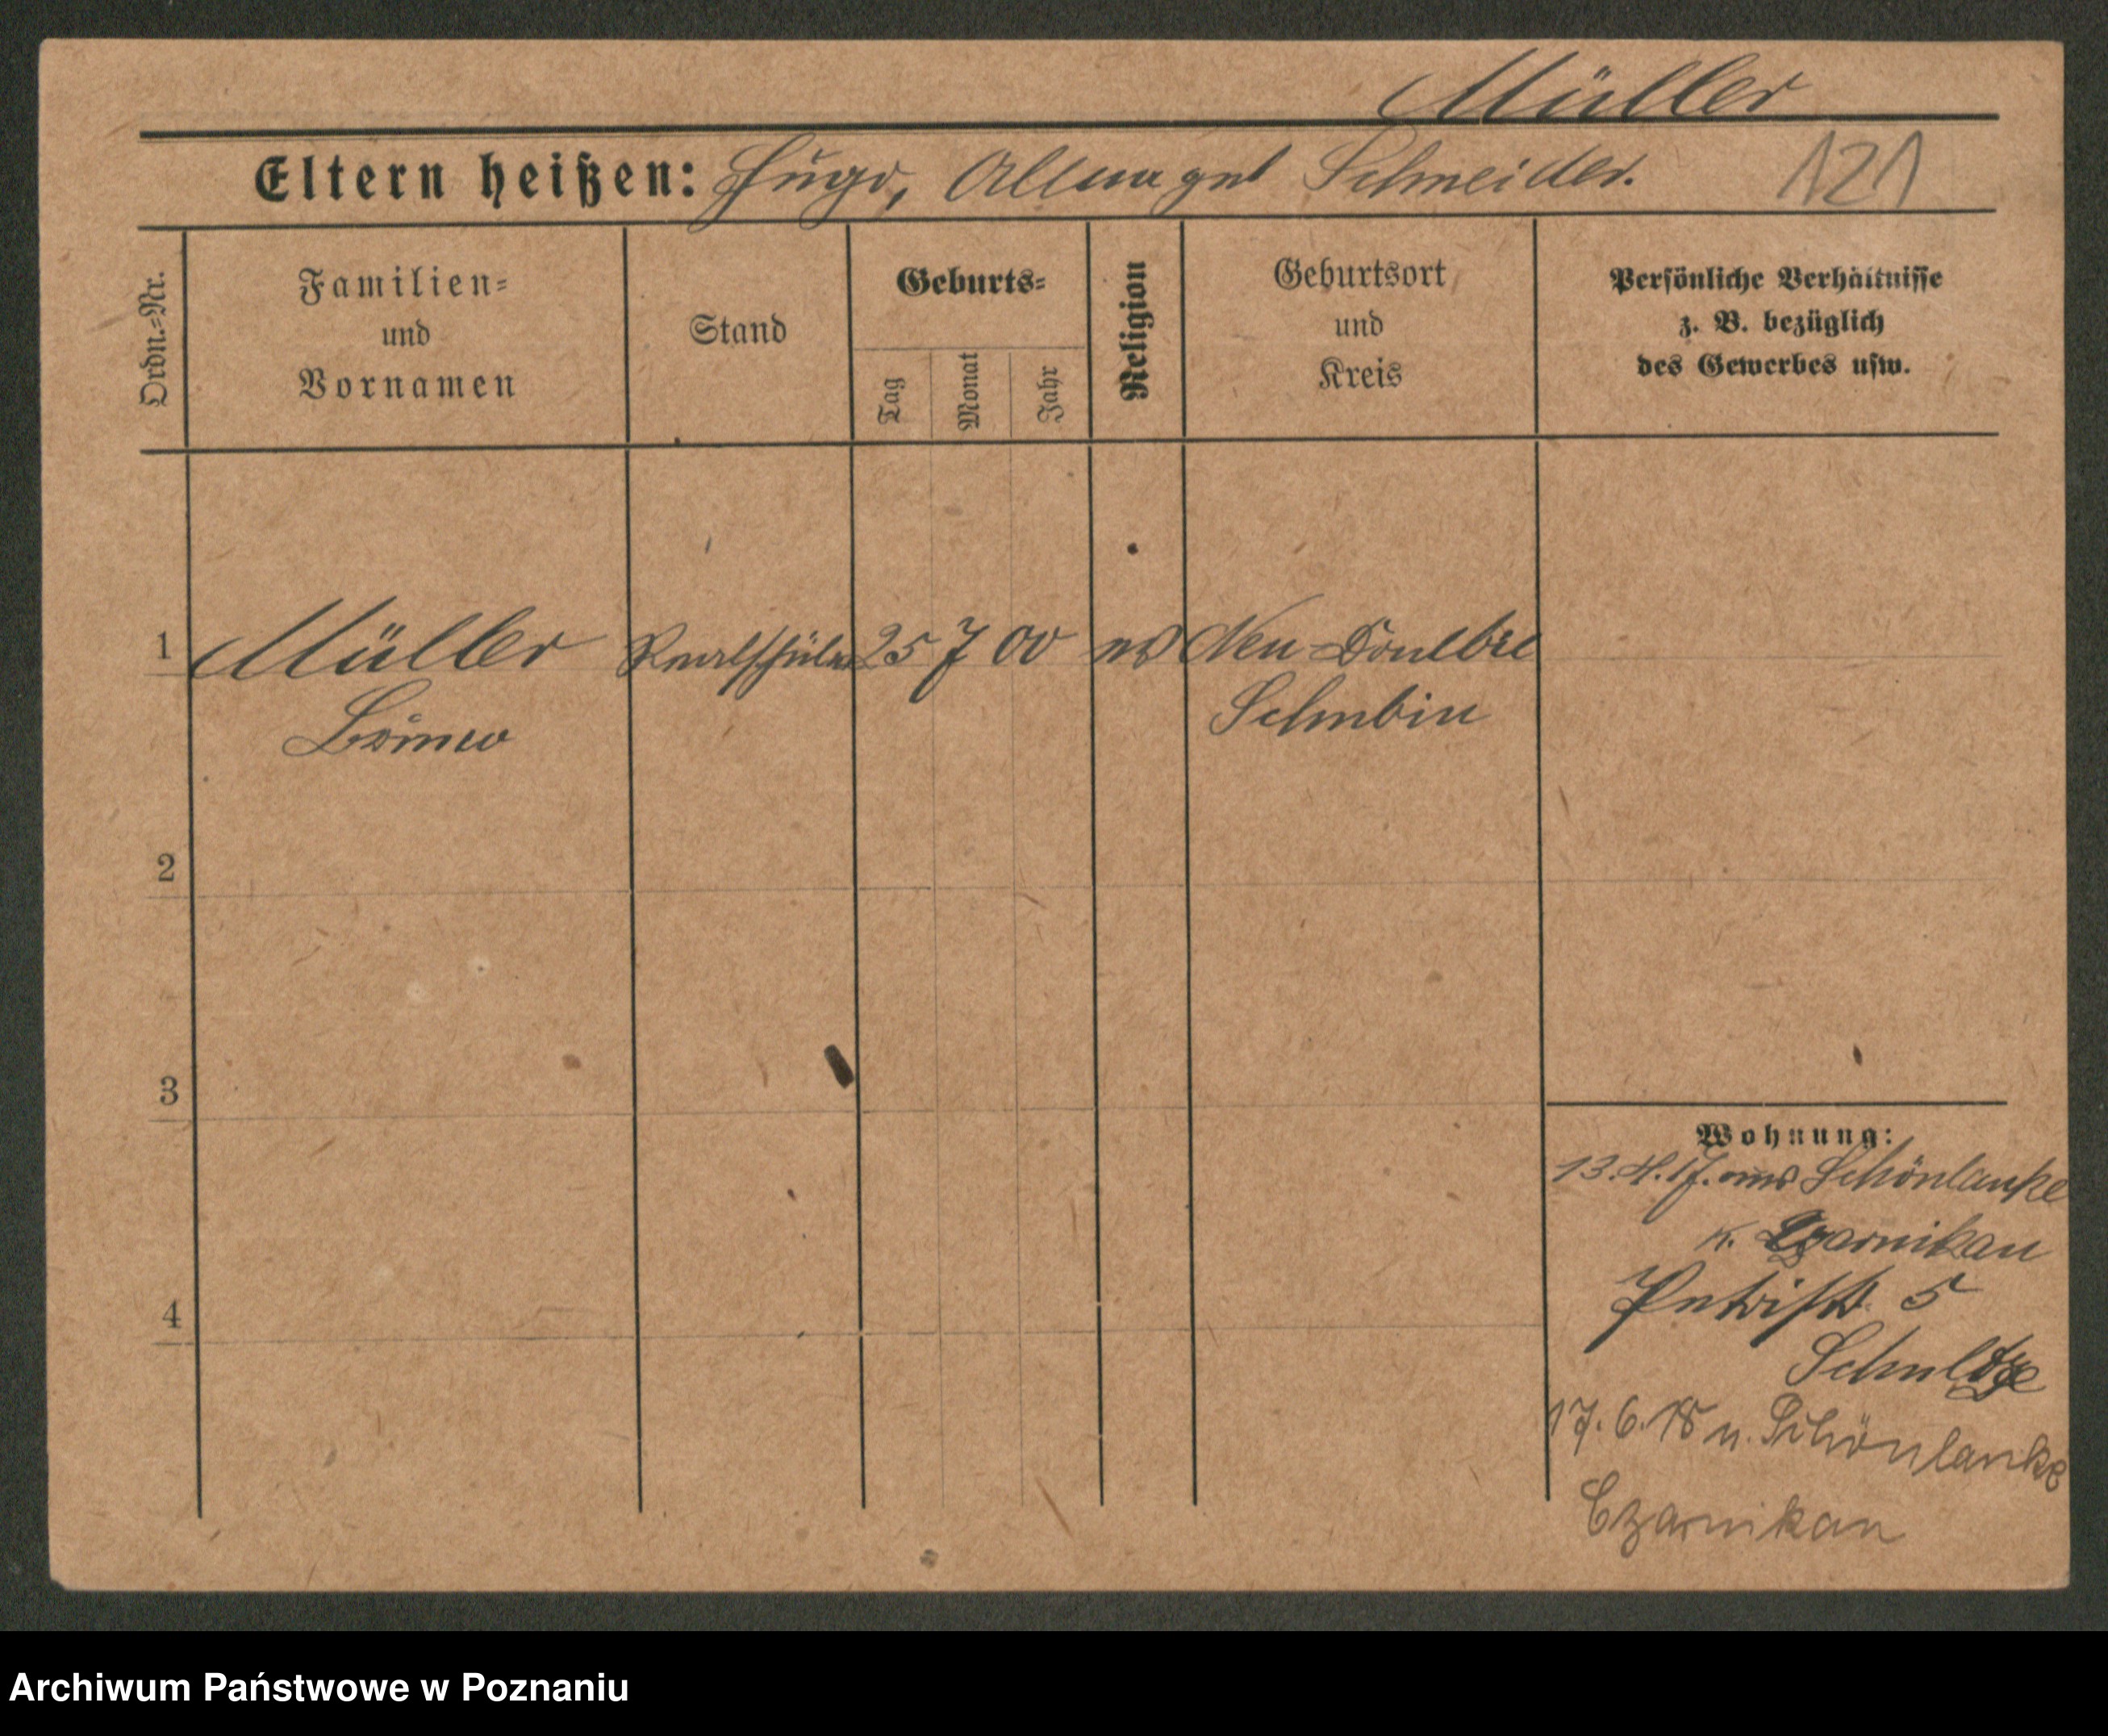 Müller
Eltern heißen: Hugo, Alma geb Schneider. 121
Ordn.=Nr.
Familien=
und
Vornamen
Stand
Geburts=
Tag
Monat
Jahr
Religion
Geburtsort
und
Kreis
Persönliche Verhältnisse
z. B. bezüglich
des Gewerbes usw.
1 Müller Realschüler 25 7 00 ev Neu-
Bruno Schubin
2
3
4
Wohnung:
13.4.17. aus Schönlanke
K. Czarnikau
Petristr. 5
Schultze
17.6.18 n. Schönlanke
Czarnikau
Archiwum Państwowe w Poznaniu